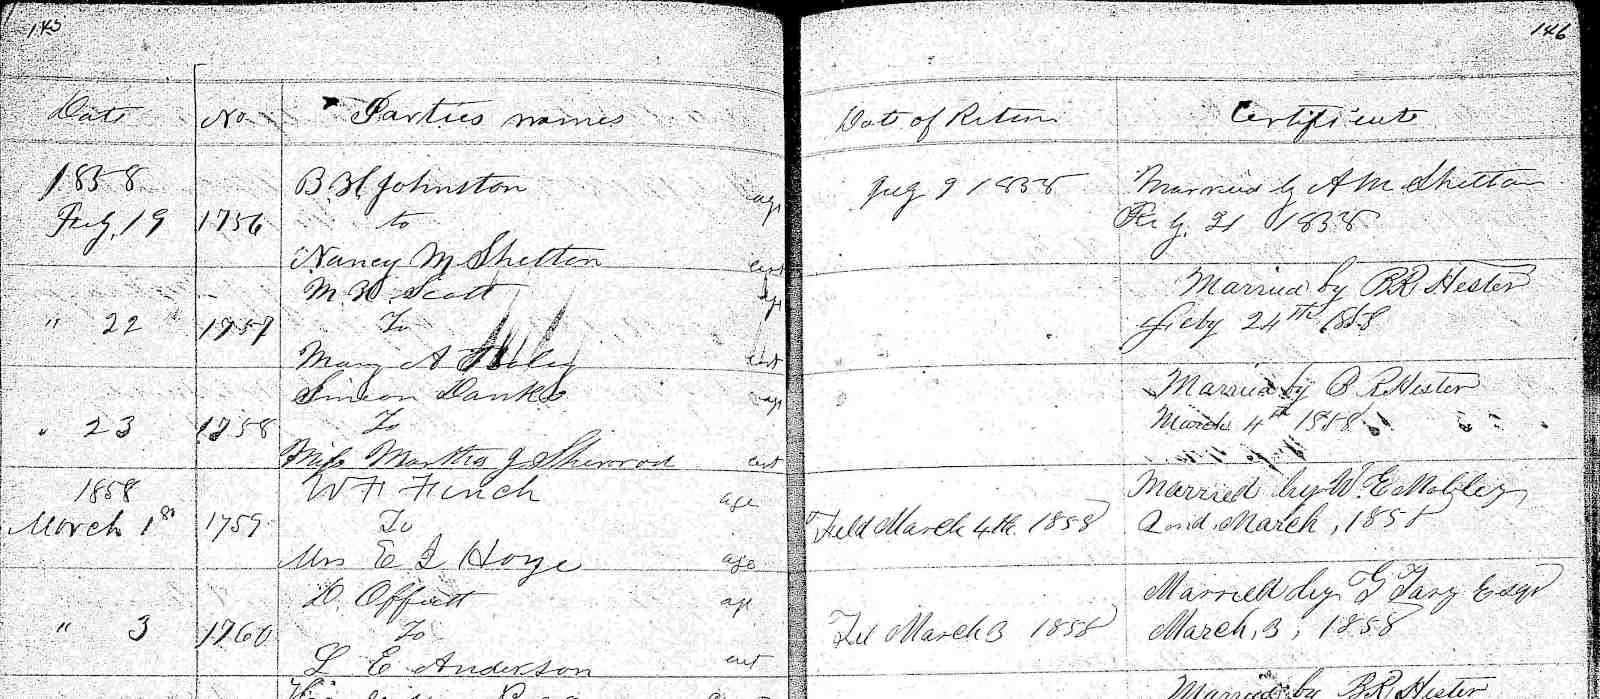 145
Date
No
Parties names
1858
B H Johnston
age
Feby. 19
1756
to
Nancy M Shelton
cert
M. W. Scott
age
" 22
1757
To
Mary A
cert
Simeon Danks
age
" 23
1758
To
Miss Martha J Sherrod
cert
1858
W F Finch
age
March 1st
1759
To
Mrs E J Hoge
age
D. Offutt
age
" 3
1760
To
L E Anderson
cert
146
Date of Return
Certificate
9 1858
Married by A M Shelton
Feby. 21 1858
Married by B R Hester
Feby 24th 1858
Married by B R Hester
March 4th 1858
Married by W. E Mobley
Filed March 4th 1858
2nd. March, 1858
Married by G Tary Esqr
Fil March 3 1858
March, 3, 1858
Married by B R Hester